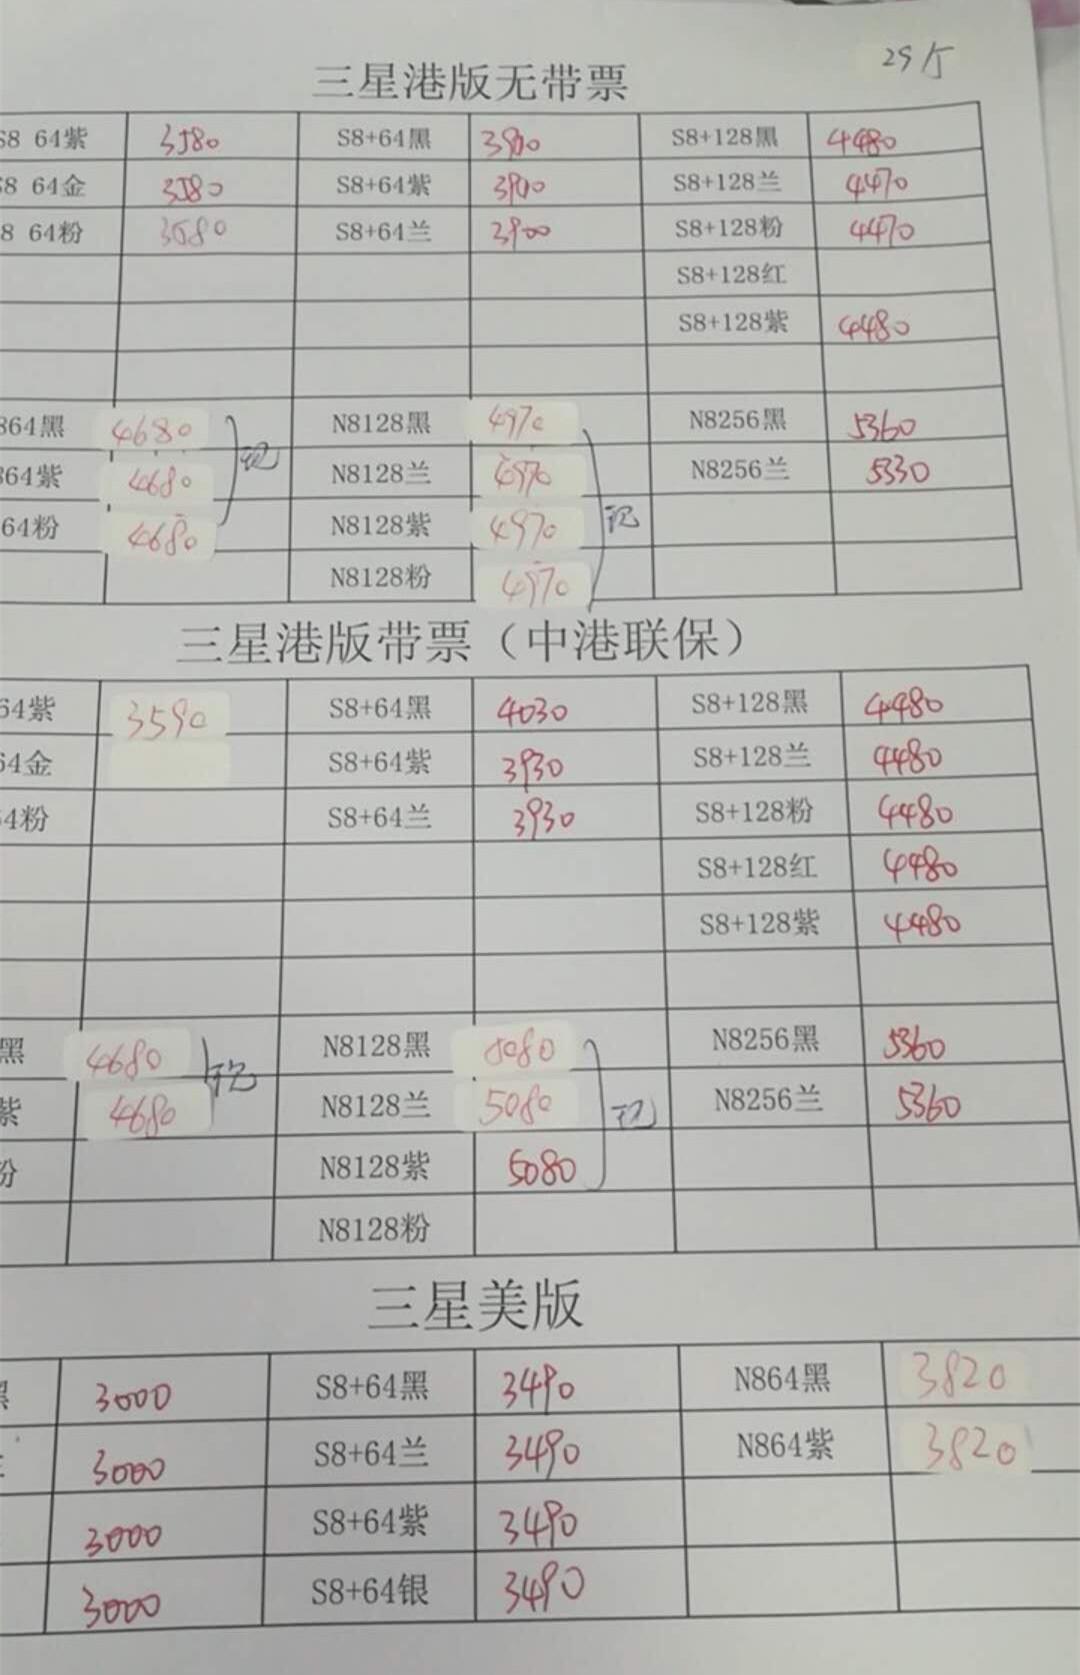 29斤
三星港版无带票
S8 64紫 3580 S8+64黑 3900 S8+128黑 4480
S8 64金 3580 S8+64紫 3900 S8+128兰 4470
8 64粉 3580 S8+64兰 3900 S8+128粉 4470
S8+128红
S8+128紫 4480
864黑 4680 N8128黑 4970 N8256黑 5360
864紫 4680 N8128兰 4970 N8256兰 5330
64粉 4680 N8128紫 4970
N8128粉 4970
三星港版带票（中港联保）
64紫 3590 S8+64黑 4030 S8+128黑 4480
64金 S8+64紫 3930 S8+128兰 4480
64粉 S8+64兰 3930 S8+128粉 4480
S8+128红 4480
S8+128紫 4480
黑 4680 N8128黑 5080 N8256黑 5360
紫 4680 N8128兰 5080 N8256兰 5360
粉 N8128紫 5080
N8128粉
三星美版
黑 3000 S8+64黑 3490 N864黑 3820
3000 S8+64兰 3490 N864紫 3820
3000 S8+64紫 3490
3000 S8+64银 3490